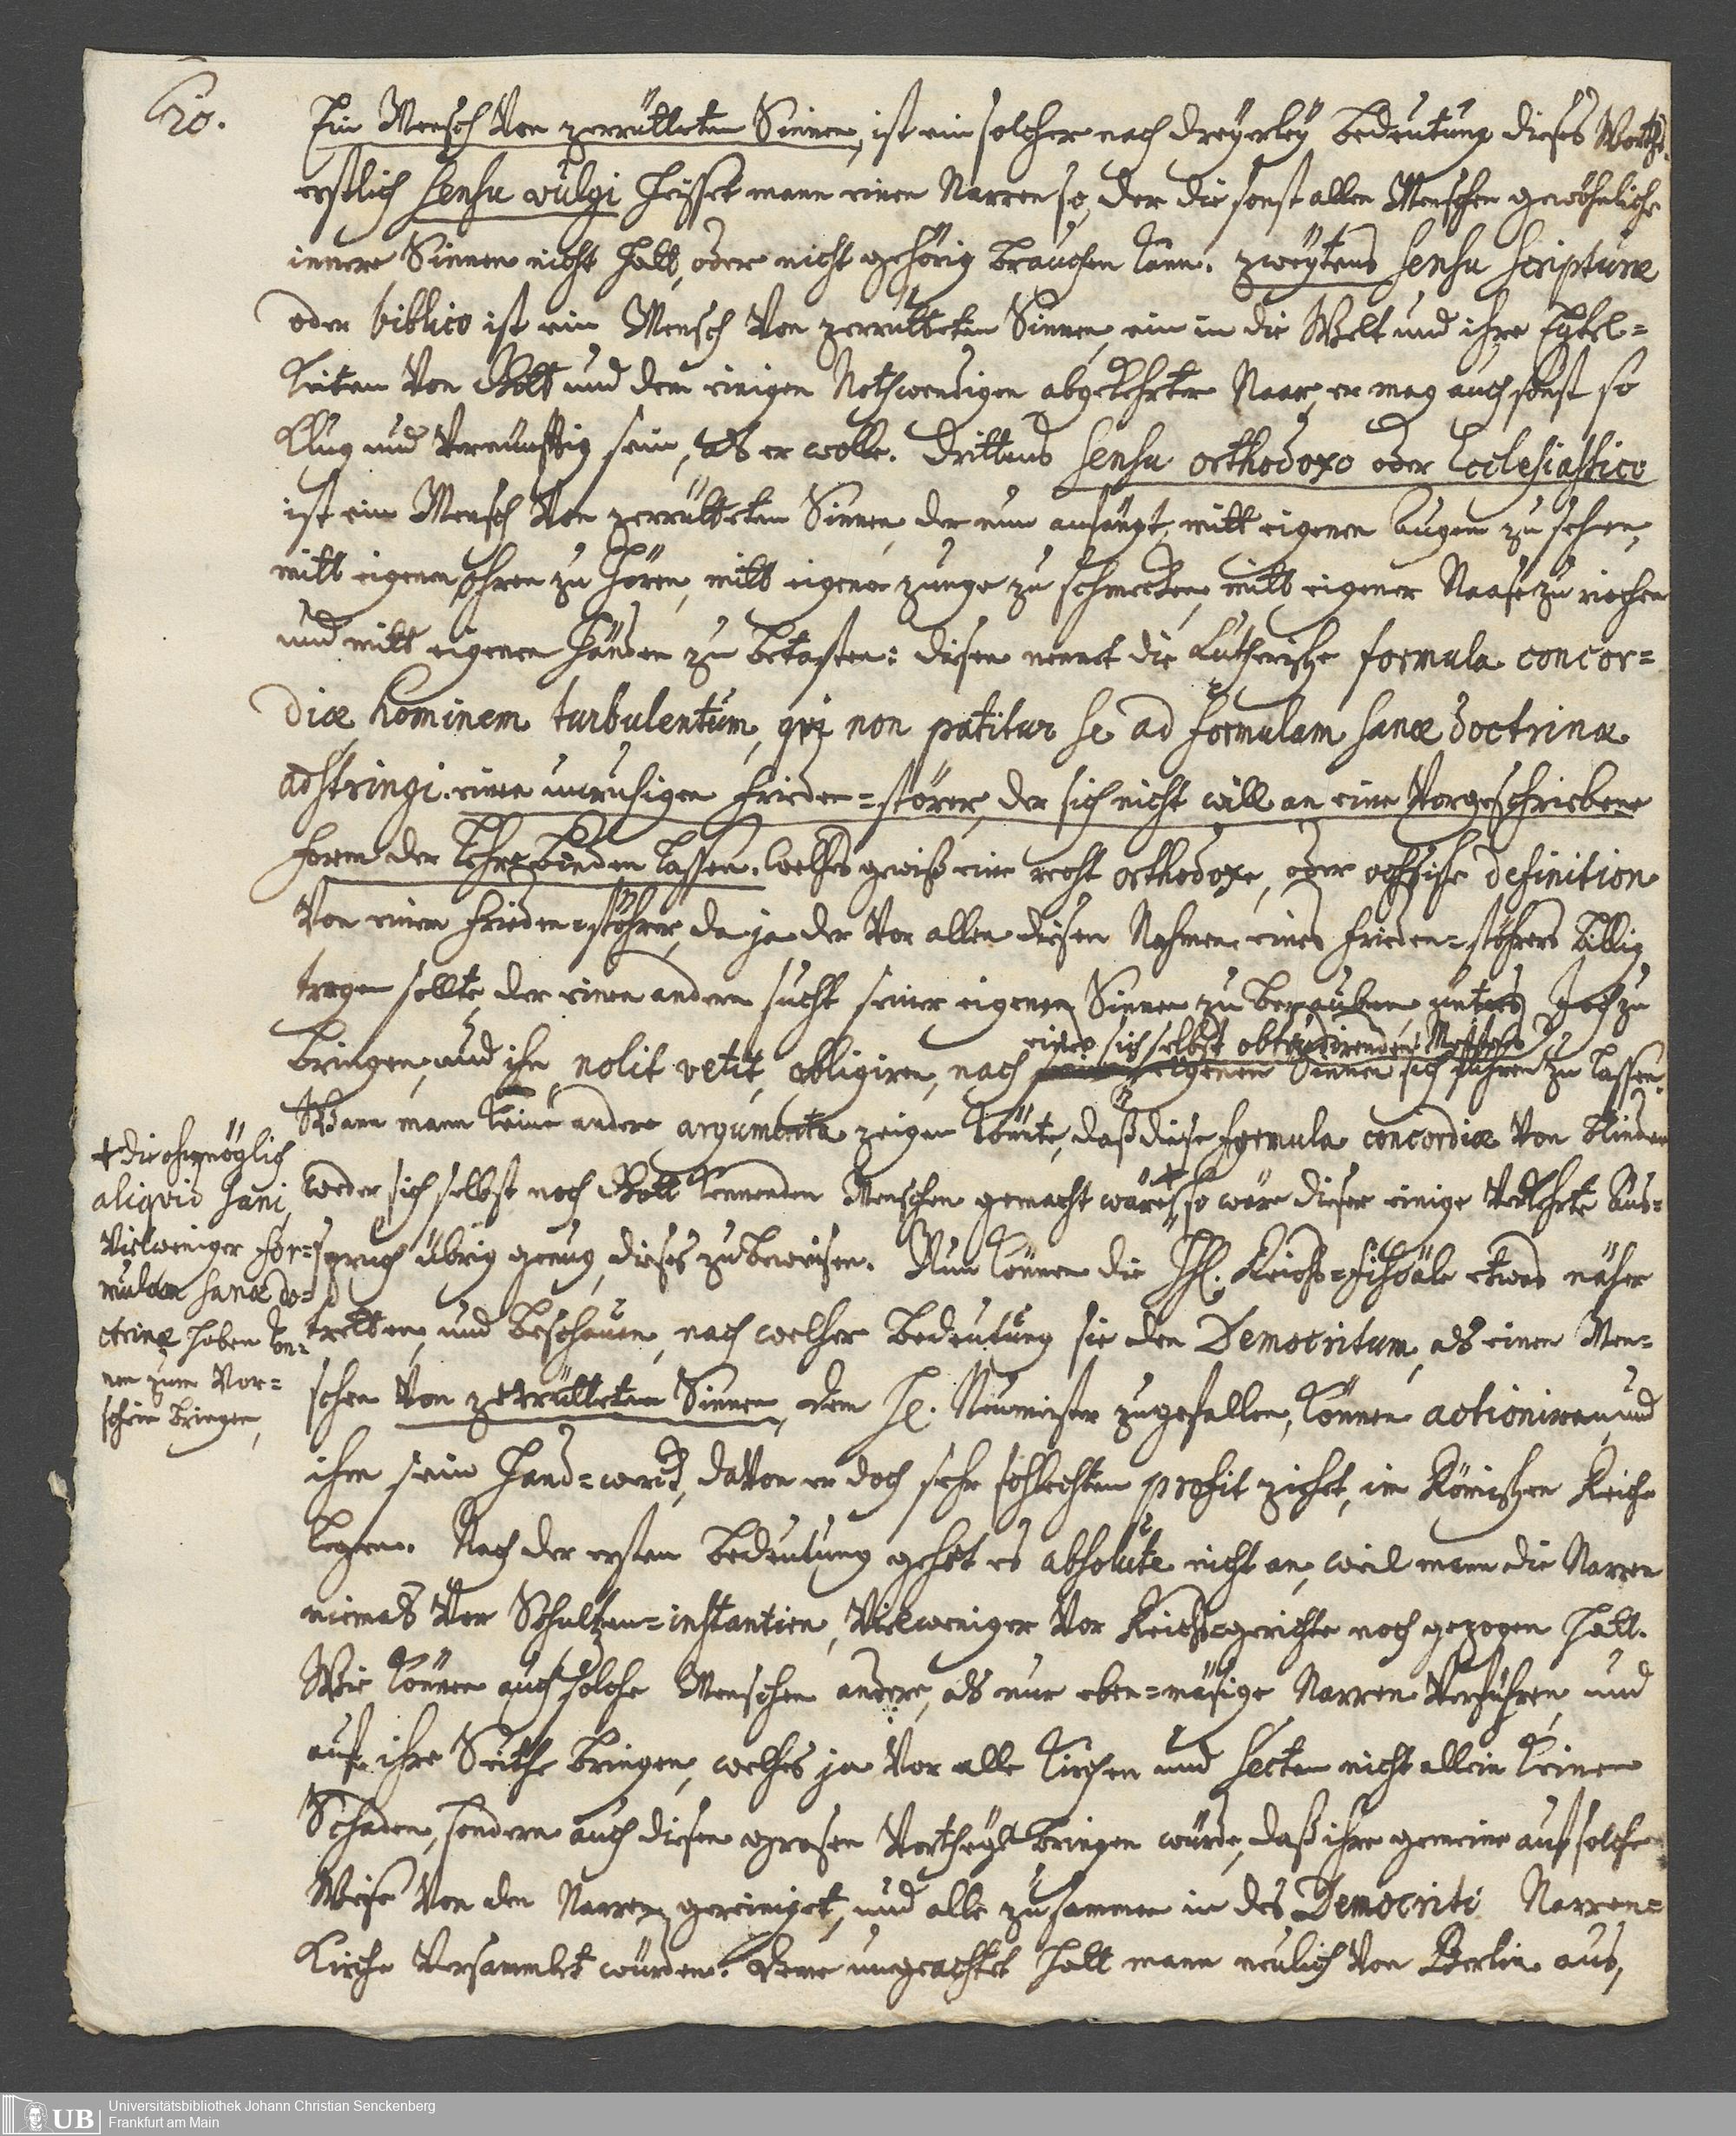 20.
Ein Mensch von zerrütteten Sinnen, ist ein solcher nach dreyerley Bedeutung dieses Worths.
erstlich sensu vulgi heisset mann einen Narren so, der die sonst allen Menschen gewöhnliche
innere Sinnen nicht hatt, oder nicht gehörig brauchen kann. zweytens sensu scripturæ
oder biblico ist ein Mensch von zerrütteten Sinnen ein in die Welt und ihre Eytel=
keiten von Gott und dem einigen Nothwendigen abgekehrter Naar, er mag auch sonst so
klug und vernünfftig sein, als er wolle. drittens sensu orthodoxo oder Ecclesiastico
ist ein Mensch von zerrütteten Sinnen, der nun anfängt, mitt eigenen Augen zu sehen,
mitt eigenen ohren zu hören, mitt eigener zunge zu schmecken, mitt eigener Naase zu riechen
und mitt eigenen händen zu betasten: diesen nennet die Lutherische formula concor=
diæ hominem turbulentum, qvi non patitur se ad formulam sanæ doctrinæ
adstringi. einen unruhigen frieden=störer, der sich nicht will an eine vorgeschriebene
form der Lehre binden lassen. welches gewiß eine recht orthodoxe, oder ochsische definition
von einem frieden=stöhrer, da ja der vor allen diesen Nahmen eines frieden=stöhrers billig
tragen sollte, der einen andern sucht seiner eigenen Sinnen zu berauben, unters Joch zu
bringen, und ihn, nolit velit, obligiren, nach eigenen Sinnen sich führen zu lassen.
eines sich selbst obtrudirenden Meisters
Wann mann keine andere argumenta zeigen könte, daß diese formula concordiæ von blinden
weder sich selbst noch Gott kennenden Menschen gemacht wäre, so wäre dieser einige verkehrte Aus=
spruch übrig genug, dieses zu beweisen. Nun können die HH. Reichs=fiscäle etwas näher
tretten, und beschauen, nach welcher Bedeutung sie den Democritum, als einen Men=
schen von zerrütteten Sinnen, dem H. Neumeister zugefallen, können actioniren, und
ihm sein Hand=werck, davon er doch sehr schlechten profit ziehet, im Römischen Reiche
legen. Nach der ersten Bedeutung gehet es absolute nicht an, weil mann die Narren
niemals vor Schultzen=instantien, vielweniger vor Reichs=gerichte noch gezogen hatt.
Wie können auch solche Menschen andere, als nur eben=mäsige Narren verführen, und
auf ihre Seithe bringen, welches ja vor alle Kirchen und Secten nicht allein keinen
Schaden, sondern auch diesen grosen Vortheyl bringen würde, daß ihre gemeine auf solche
Weise von den Narren gereiniget, und alle zusammen in des Democriti Narren=
Kirche versammlet würden. Deme ungeachtet hatt mann neulich von Berlin aus,
+ die ohnmöglich
aliqvid sani,
vielweniger for=
mulam sanæ do=
ctrinæ haben kön=
nen zum Vor=
schein bringen,
Universitätsbibliothek Johann Christian Senckenberg
Frankfurt am Main
UB